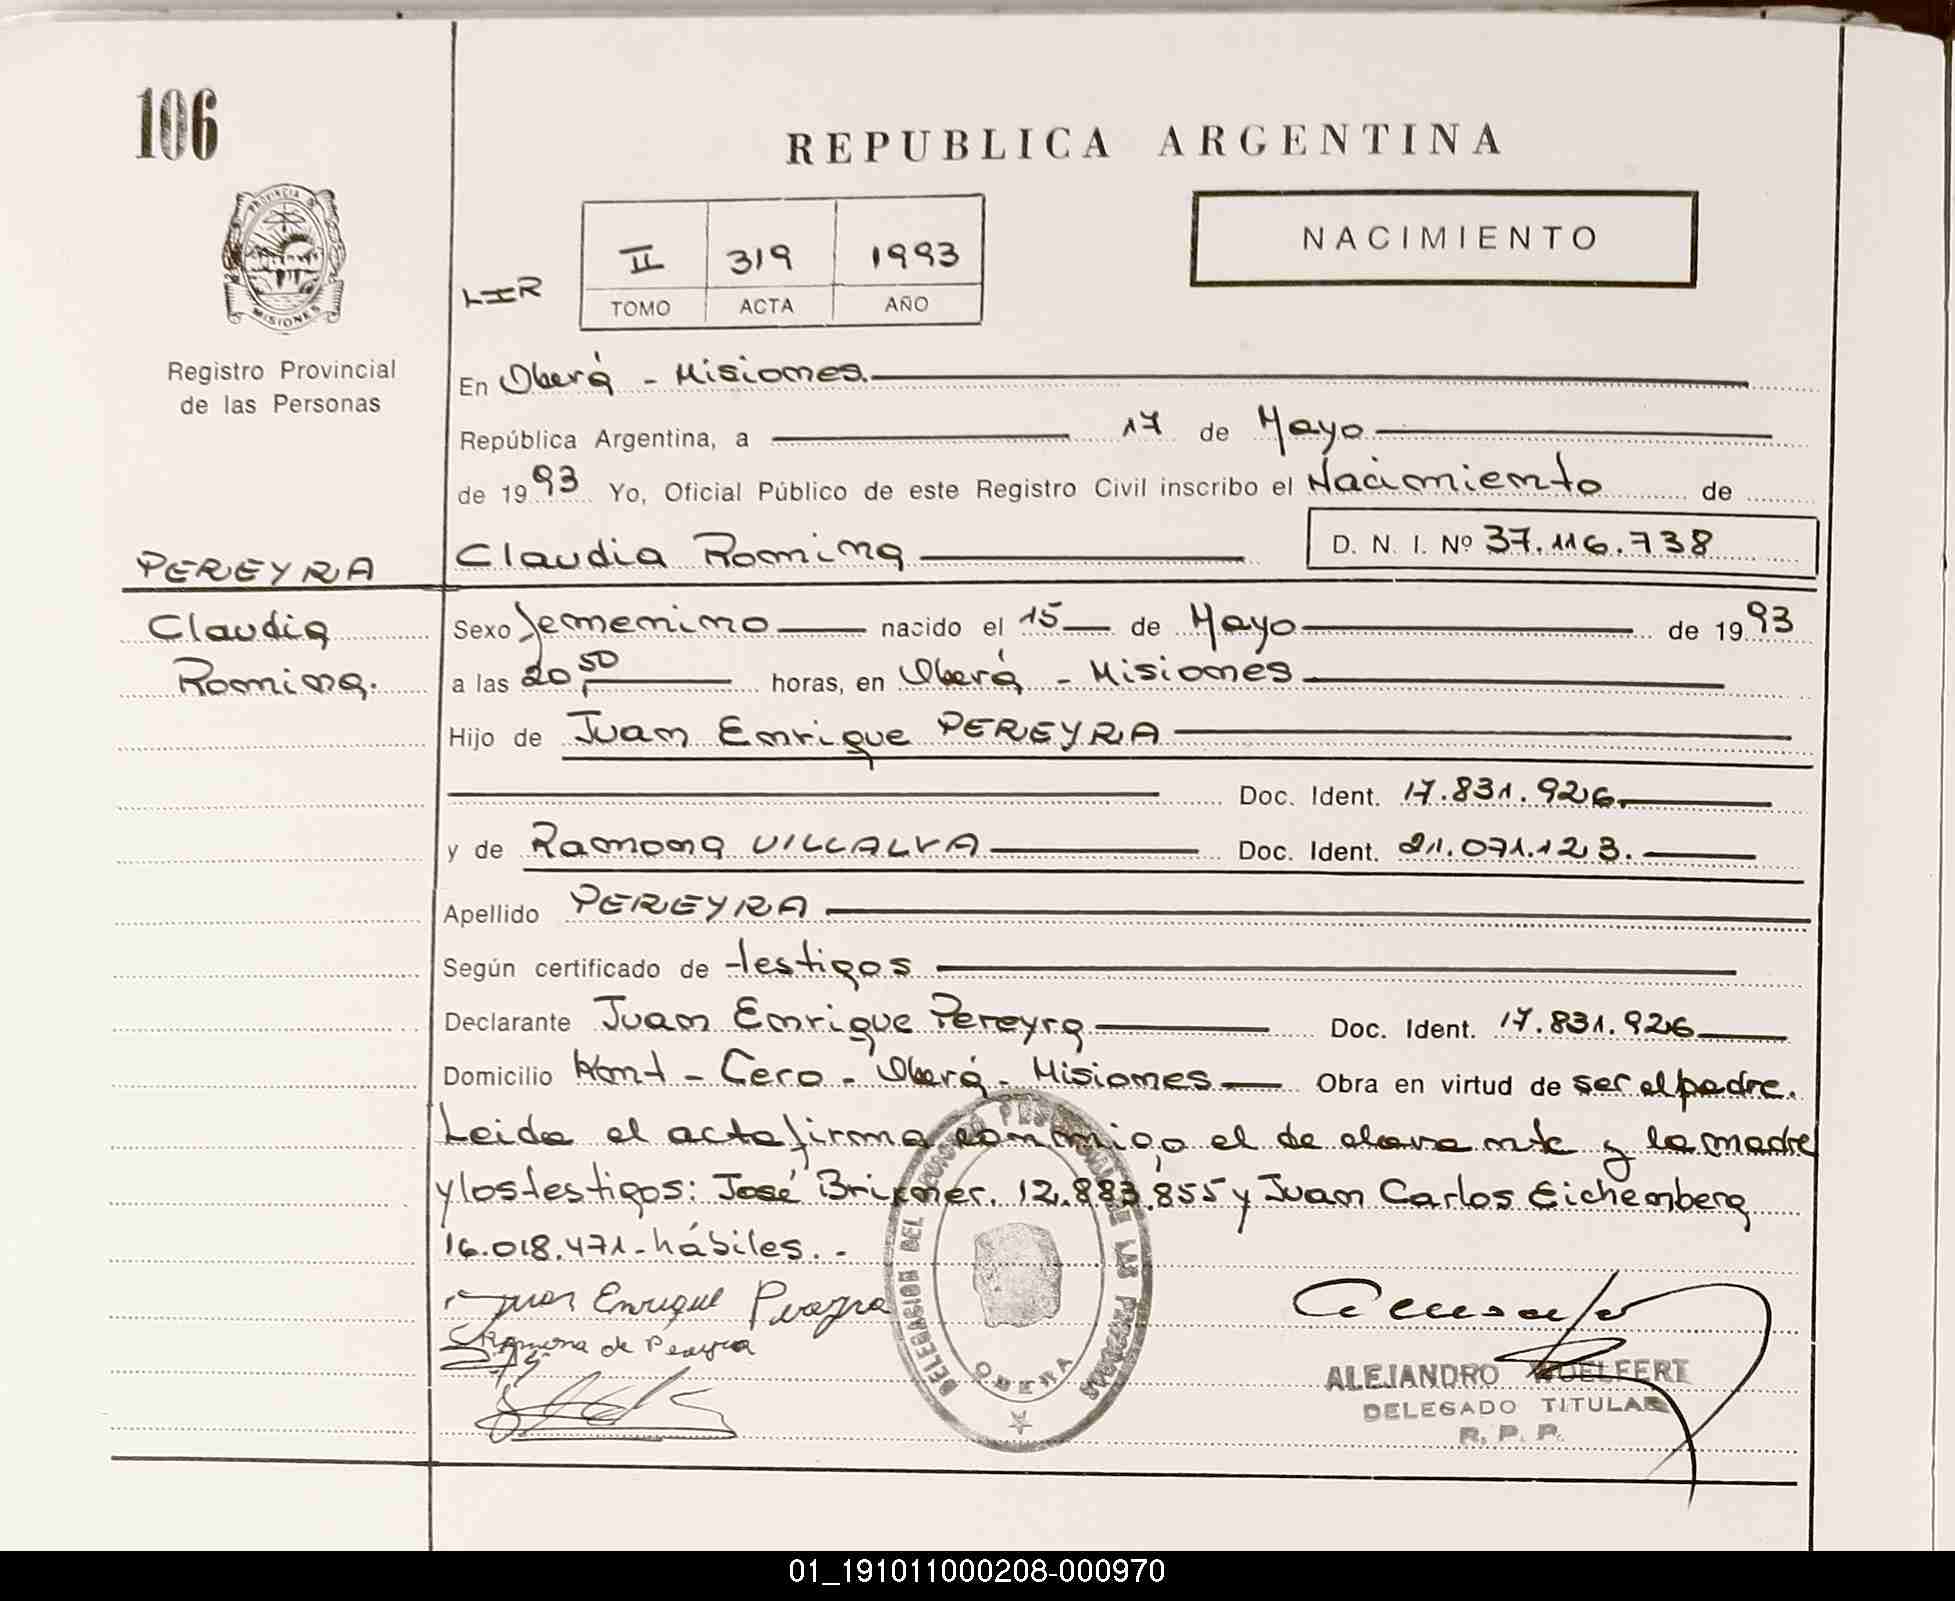 106
REPUBLICA ARGENTINA
PROVINCIA D
MISIONES
Registro Provincial
de las Personas
II 319 1993
TOMO ACTA AÑO
NACIMIENTO
En Oberá - Misiones.
República Argentina, a 17 de Mayo
de 1993 Yo, Oficial Público de este Registro Civil inscribo el Nacimiento de
PEREYRA Claudia Romina D. N. I. Nº 37.116.738
Claudia Sexo femenino nacido el 15 de Mayo de 1993
Romina. a las 20,50 horas, en Oberá - Misiones
Hijo de Juan Enrique PEREYRA
Doc. Ident. 17.831.926
y de Ramona VILLALVA Doc. Ident. 21.071.123.
Apellido PEREYRA
Según certificado de testigos
Declarante Juan Enrique Pereyra Doc. Ident. 17.831.926
Domicilio Kmt - Cero - Oberá - Misiones Obra en virtud de ser el padre.
Leida el acta firma conmigo el declarante y la madre
y los testigos: José Brixner. 12.883.855 y Juan Carlos Eichenberg
16.018.471 - hábiles. -
Juan Enrique Pereyra
Ramona de Pereyra
DELEGACION DEL LAS PERSONAS
OBERA
ALEJANDRO WOELFERT
DELEGADO TITULAR
R. P. P.
01_191011000208-000970